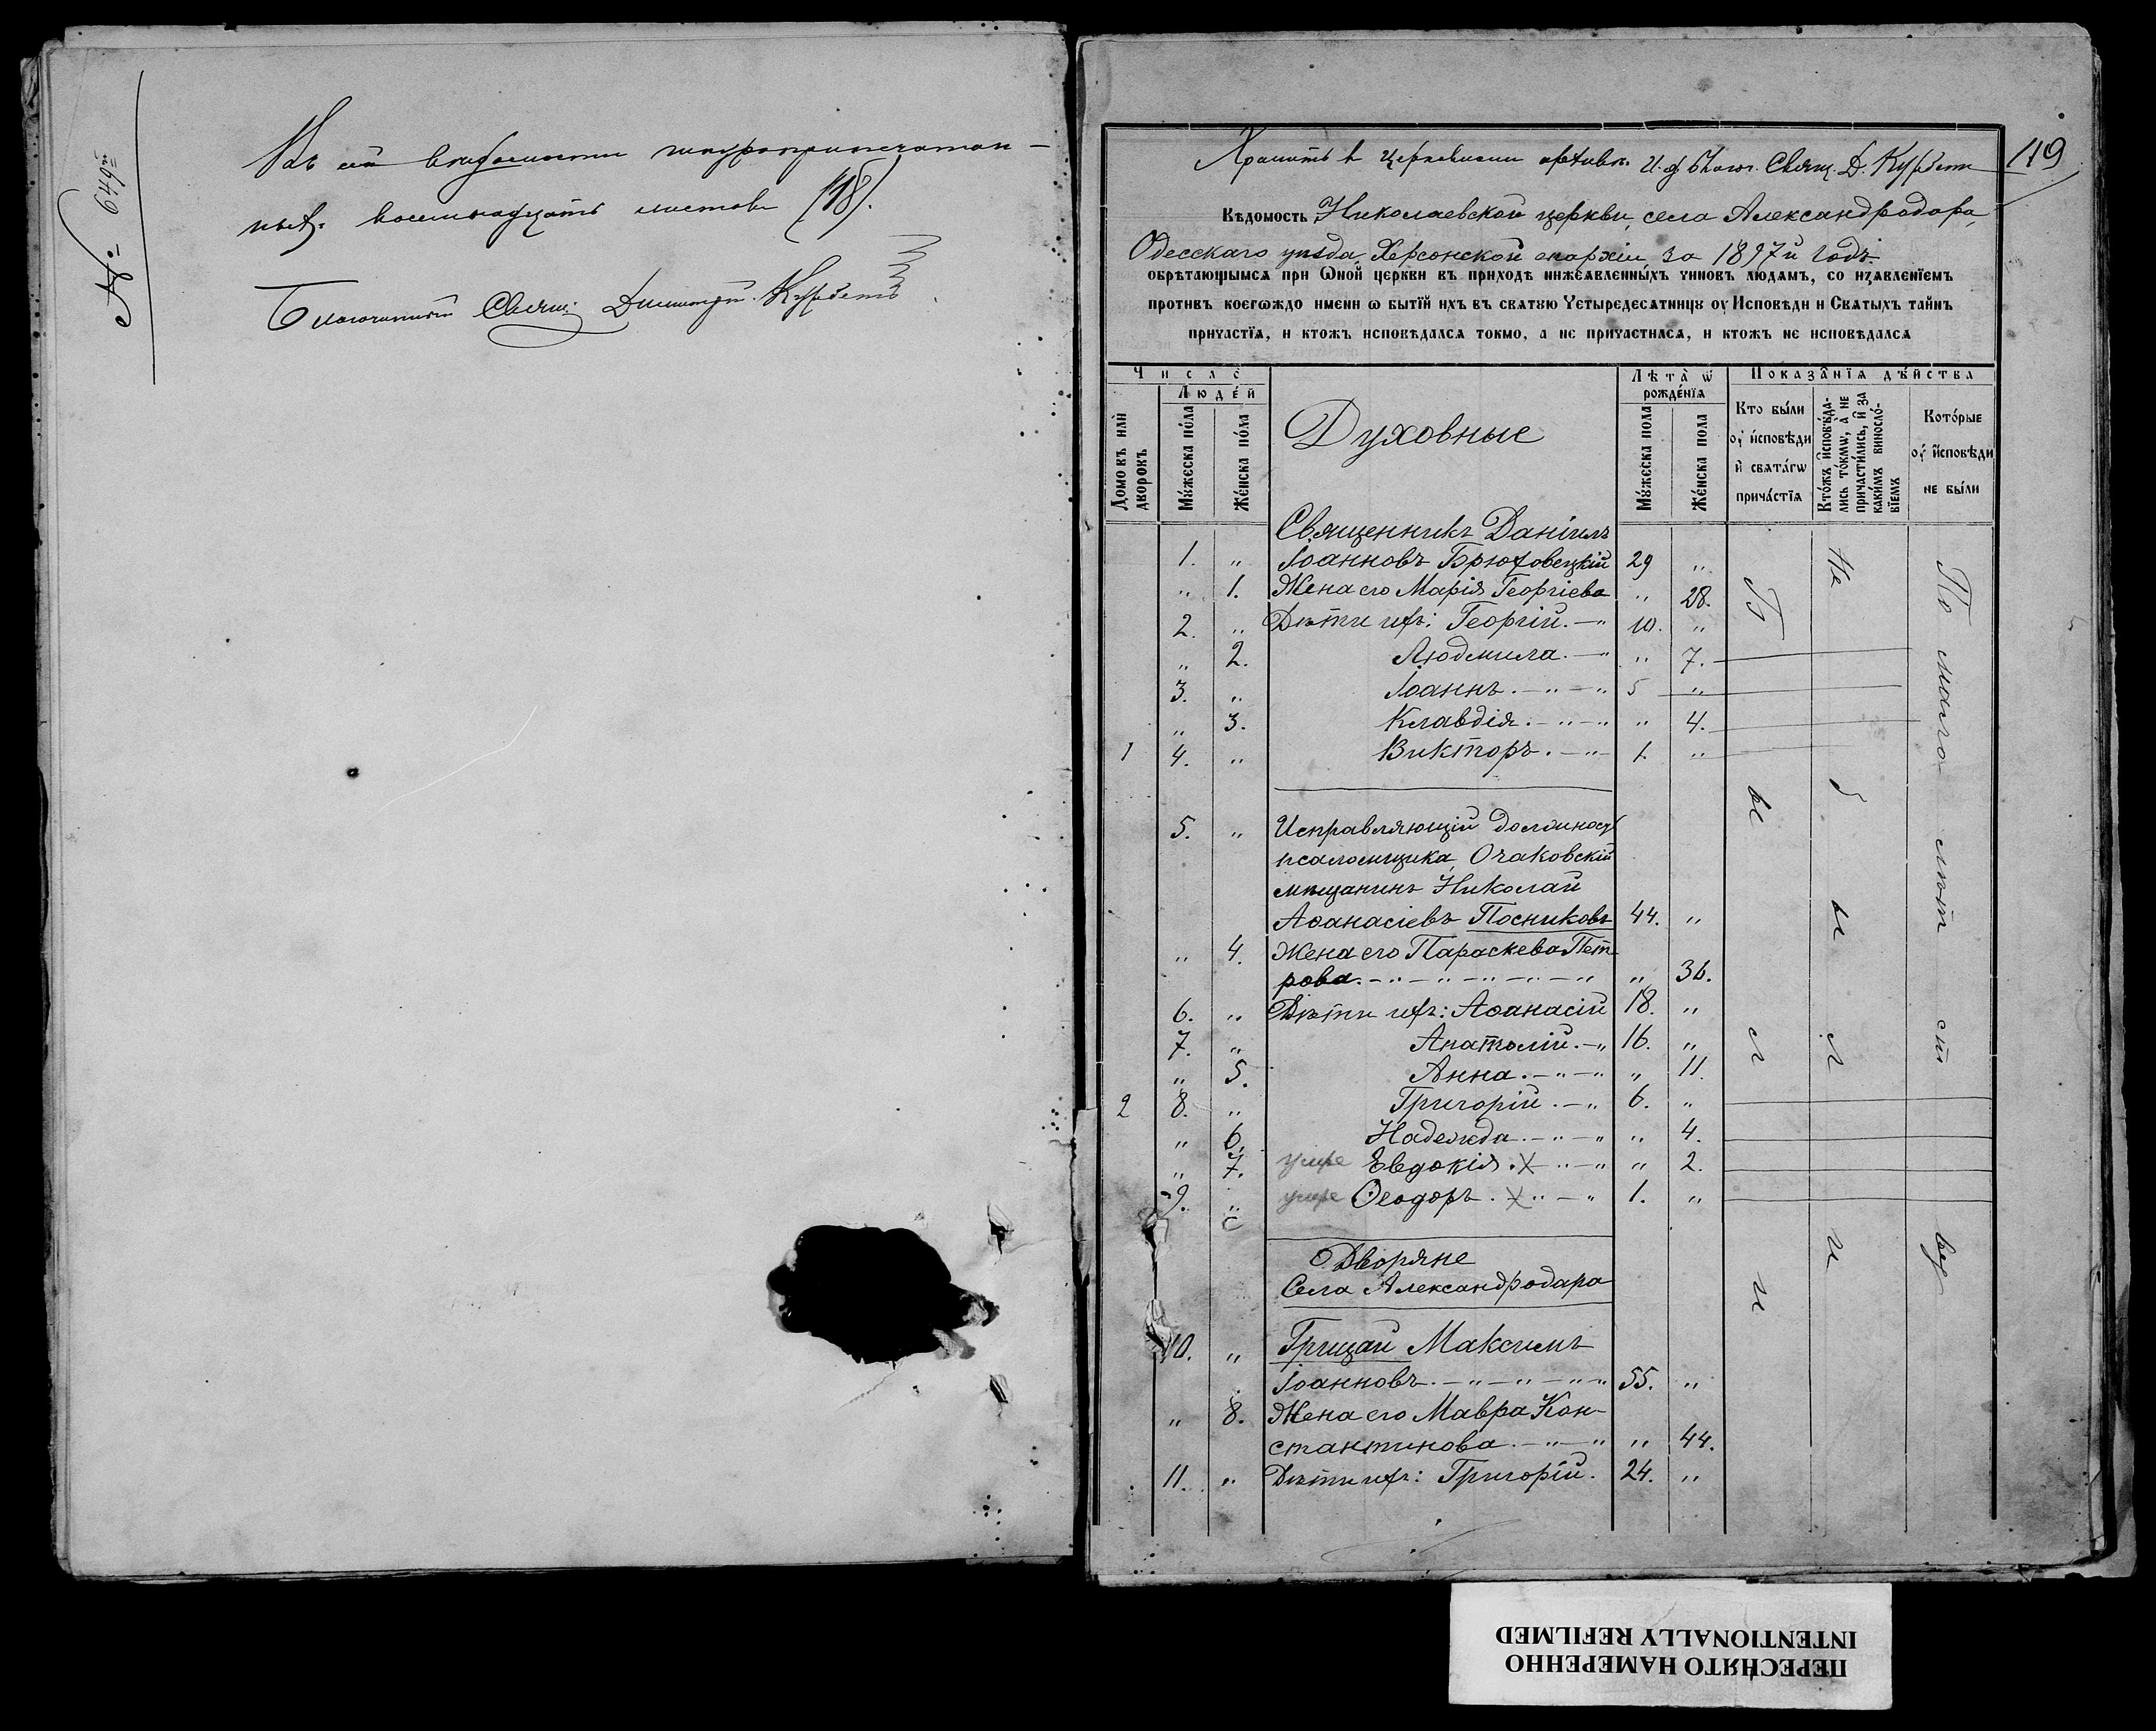 № 649
Въ сей вѣдомости шнуроприпечатан-
ныхъ восемнадцать листовъ (18).
Благочинный Свящ: Димитрій Курбетъ
119
Хранить въ церковномъ архивѣ. И. д. Благоч. Свящ. Д. Курбетъ
Вѣдомость Николаевской церкви, села Александродара,
Одесскаго уѣзда, Херсонской епархіи за 1897й годъ.
обрѣтающымся при Ѡной церкви въ приходѣ нижеявленныхъ чиновъ людамъ, со изъявленїемъ
противъ коегѡждо имени ѡ бытїй ихъ въ святую Четыредесятницу оу Исповѣди и Святыхъ тайнъ
причастїя, и ктожъ исповѣдался токмо, а не причастился, и ктожъ не исповѣдался
Число
Людей
Домовъ или дворовъ
Мужеска пола
Женска пола
Духовные
Лѣта ѿ рожденїя
Мужеска пола
Женска пола
Показанїя дѣйства
Кто были оу исповѣди и святагѡ причастїя
Ктожъ исповѣдались токмѡ, а не причастились, и за какимъ винословїемъ
Которые оу исповѣди не были
Священникъ Даніилъ
1. „ Іоанновъ Брюховецкій 29 „
„ 1. Жена его Марія Георгіева „ 28.
2. „ Дѣти ихъ: Георгій. – „ 10. „
„ 2. Людмила. – „ „ 7.
3. „ Іоаннъ. – „ – „ 5 „
„ 3. Клавдія. – „ – „ „ 4.
1 4. „ Викторъ. – „ – 1. „
5. „ Исправляющій должность
псаломщика, Очаковскій
мѣщанинъ Николай
Аѳанасіевъ Посниковъ 44. „
„ 4. Жена его Параскева Пет-
рова. – „ – „ – „ – „ – „ „ 36.
6. „ Дѣти ихъ: Аѳанасій 18. „
7. „ Анатолій. – „ 16. „
„ 5. Анна. – „ – „ „ 11.
2 8. „ Григорій. – „ 6. „
„ 6. Надежда. – „ – „ „ 4.
„ 7. умре Евдокія. X „ – „ „ 2.
9. „ умре Ѳеодоръ. X „ – „ 1. „
Дворяне
Села Александродара
10. „ Грицай Максимъ
Іоанновъ. – „ – „ – „ – „ 55. „
„ 8. Жена его Мавра Кон-
стантинова. – „ – „ „ 44.
11. „ Дѣти ихъ: Григорій. 24. „
Были
Не были
По малолѣтству
ПЕРЕСНЯТО НАМЕРЕННО
INTENTIONALLY REFILMED